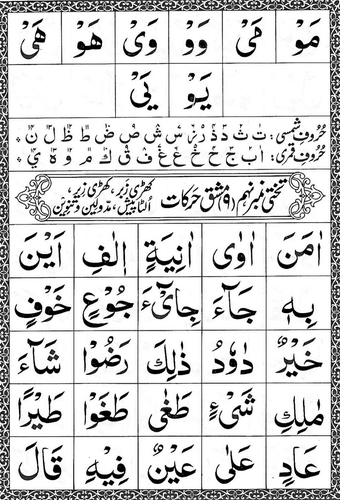 مَوْ مَیْ وَوْ وَیْ هَوْ هَیْ
یَوْ یَیْ
حُروفِ شمسی: ت ث د ذ ر ز س ش ص ض ط ظ ل ن
حُروفِ قمری: ا ب ج ح خ ع غ ف ق ک م و ه ی
تختی نمبر نہم (۹) مشق حرکات کھڑی زَبر، کھڑی زیر،
اُلٹا پیش، مدّولین وتنوین
اٰمَنَ اٰوٰی اٰنِیَةٍ اٖلٰفِ اَیْنَ
بِهٖ جَآءَ جِایْٓءَ جُوْعٍ خَوْفٍ
خَیْرٌ دَاوٗدُ ذٰلِكَ رَضُوْا شَآءَ
مٰلِكِ شَیْءٍ طَغٰی طَغَوْا طَیْرًا
عَادٍ عَلٰی عَیْنٌ فِیْهِ قَالَ